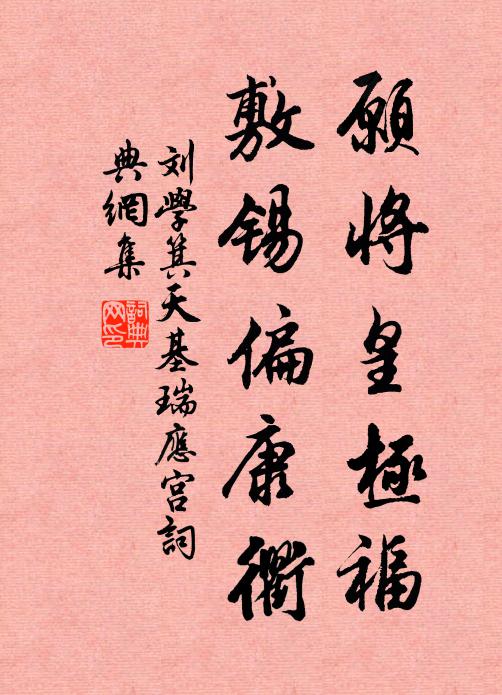 願將皇極福
敷錫偏康衢
刘學箕天基瑞應宫詞
典網集
詞典
网印